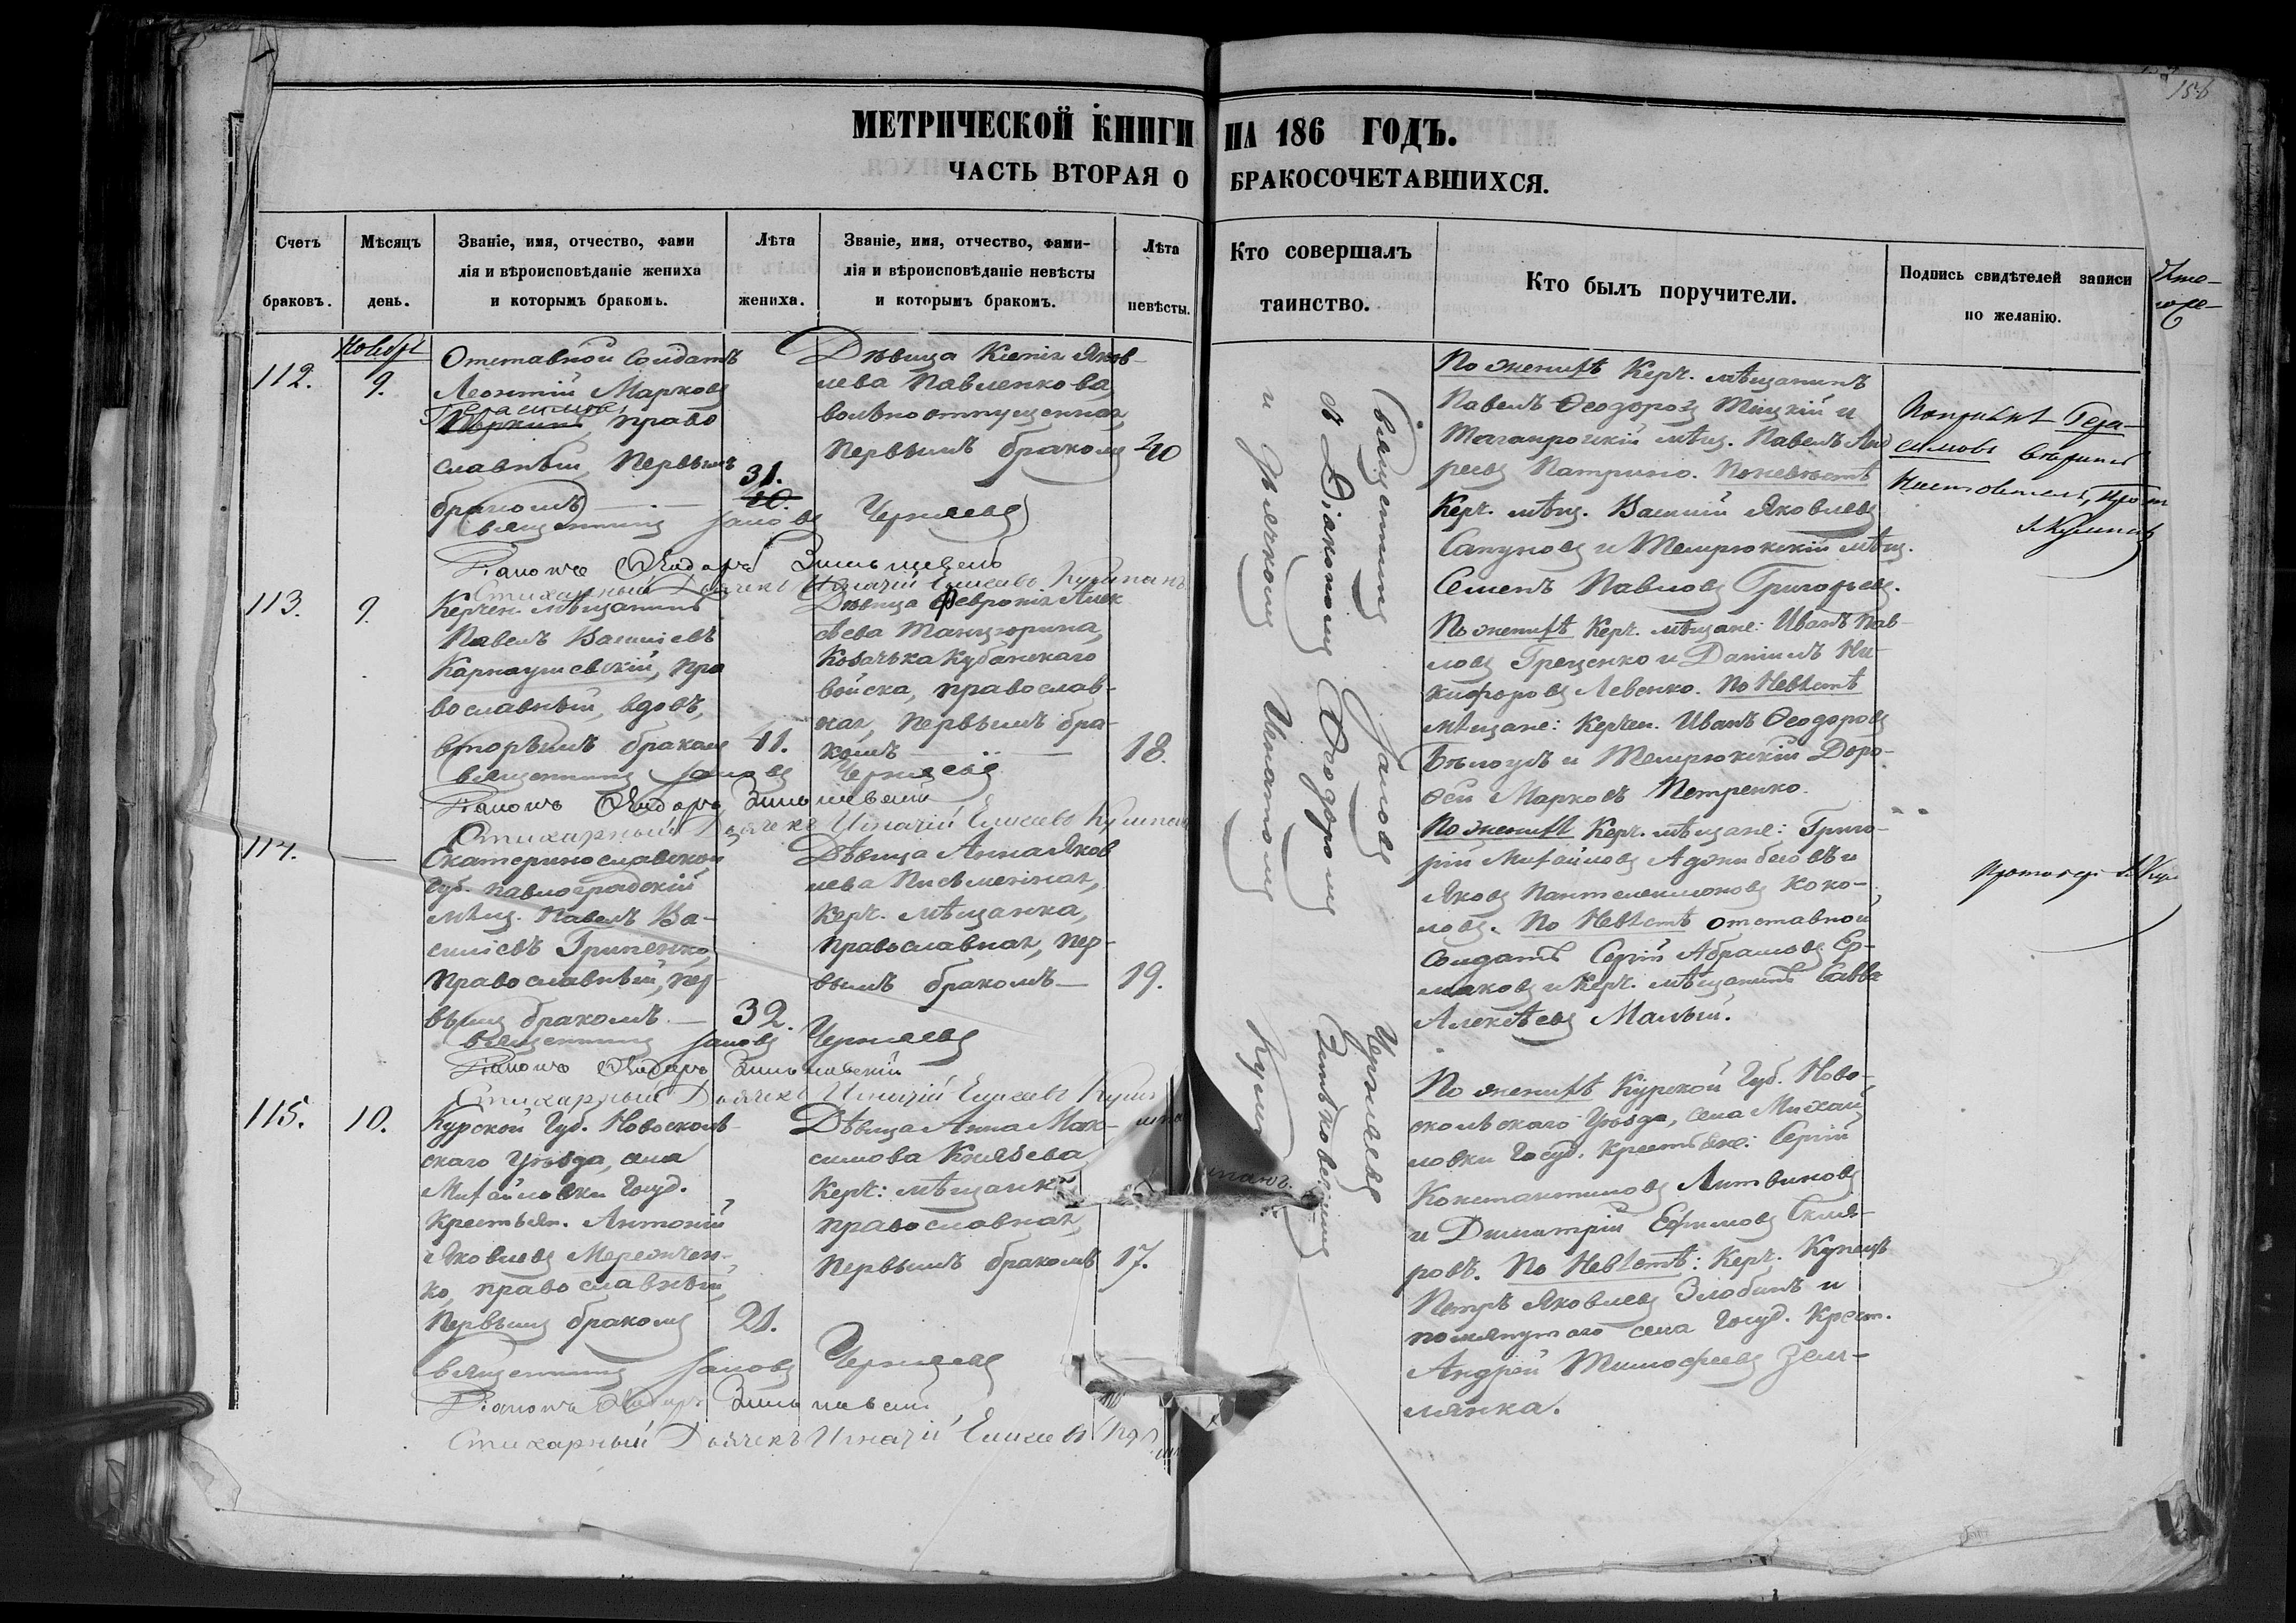 156
МЕТРИЧЕСКОЙ КНИГИ НА 186 ГОДЪ.
ЧАСТЬ ВТОРАЯ О БРАКОСОЧЕТАВШИХСЯ.
Счетъ
браковъ.
Мѣсяцъ
день.
Званіе, имя, отчество, фами
лія и вѣроисповѣданіе жениха
и которымъ бракомъ.
Лѣта
жениха.
Званіе, имя, отчество, фами-
лія и вѣроисповѣданіе невѣсты
и которымъ бракомъ.
Лѣта
невѣсты.
Кто совершалъ
таинство.
Кто былъ поручители.
Подпись свидѣтелей записи
по желанію.
112.
Ноябрь
9.
Отставной Солдатъ
Леонтій Марковъ
Герасимовъ
право
славный, первымъ
бракомъ
31.
40.
Дѣвица Ксенія Яков-
лева Павленкова,
вольноотпущенная,
первымъ бракомъ
20
Священникъ Іаковъ Черняевъ
Діаконъ Ѳеодоръ
Стихарный Дьячекъ Игнатій
По женихѣ Керч. мѣщанинъ
Павелъ Ѳеодоровъ и
Таганрогскій мѣщ. Павелъ Анд
реевъ Патрино. По невѣстѣ
Керч. мѣщ. Василій Яковлевъ
Сапуновъ и Темрюкскій мѣщ.
Семенъ Павловъ Григорьевъ.
Гера-
симовъ
113.
9.
Керчен. мѣщанинъ
Павелъ Василіевъ
Карнаушевскій, пра
вославный, вдовъ,
вторымъ бракомъ
41.
Дѣвица Февронія Алек
сѣева Танцюрина,
Козачька Кубанскаго
войска, православ-
ная, первымъ бра-
комъ
18.
Священникъ Іаковъ Черняевъ
Діаконъ Ѳеодоръ
Стихарный Дьячекъ Игнатій
По женихѣ Керч. мѣщане: Иванъ Пав-
ловъ Греценко и Даніилъ Ни-
кифоровъ Левенко. По Невѣстѣ
мѣщане: Керчен. Иванъ Ѳеодоровъ
Бѣлоусъ и Темрюкскій Доро-
ѳей Марковъ Петренко.
114.
Екатеринославской
Губ. Павлоградскій
мѣщ. Павелъ Ва-
силіевъ Гриненко,
православный, пер-
вымъ бракомъ.
32.
Дѣвица Анна Яков
лева Письменная,
Керч. мѣщанка,
православная, пер-
вымъ бракомъ
19.
Священникъ Іаковъ Черняевъ
Діаконъ Ѳеодоръ
Стихарный Дьячекъ Игнатій
По женихѣ Керч. мѣщане: Григо-
рій Михайловъ и
Яковъ Пантелеимоновъ Коко-
ловъ. По Невѣстѣ отставной
Солдатъ Сергій Абрамовъ Ер-
маковъ и Керч. мѣщанинъ Савва
Алексѣевъ Малый.
115.
10.
Курской Губ. Новооскол-
скаго Уѣзда, села
Михайловки Госуд.
Крестьян. Антоній
Яковлевъ Мережчен-
ко, православный,
первымъ бракомъ
21.
Дѣвица Анна Мак-
симова Князева
Керч: мѣщанка
православная,
первымъ бракомъ
17.
Священникъ Іаковъ Черняевъ
Діаконъ Ѳеодоръ
Стихарный Дьячекъ Игнатій
По женихѣ Курской Губ. Ново-
оскольскаго Уѣзда, села Михай
ловки Госуд. Крестьяне: Сергій
Константиновъ Литвиновъ
и Димитрій Ефимовъ Скля-
ровъ. По Невѣстѣ: Керч. Купецъ
Петръ Яковлевъ Злобинъ и
помянутаго села Госуд. Крест.
Андрей Тимофеевъ Зем-
лянка.
Священникъ Іаковъ Черняевъ
съ Діакономъ Ѳеодоромъ
и Дьячкомъ Игнатомъ